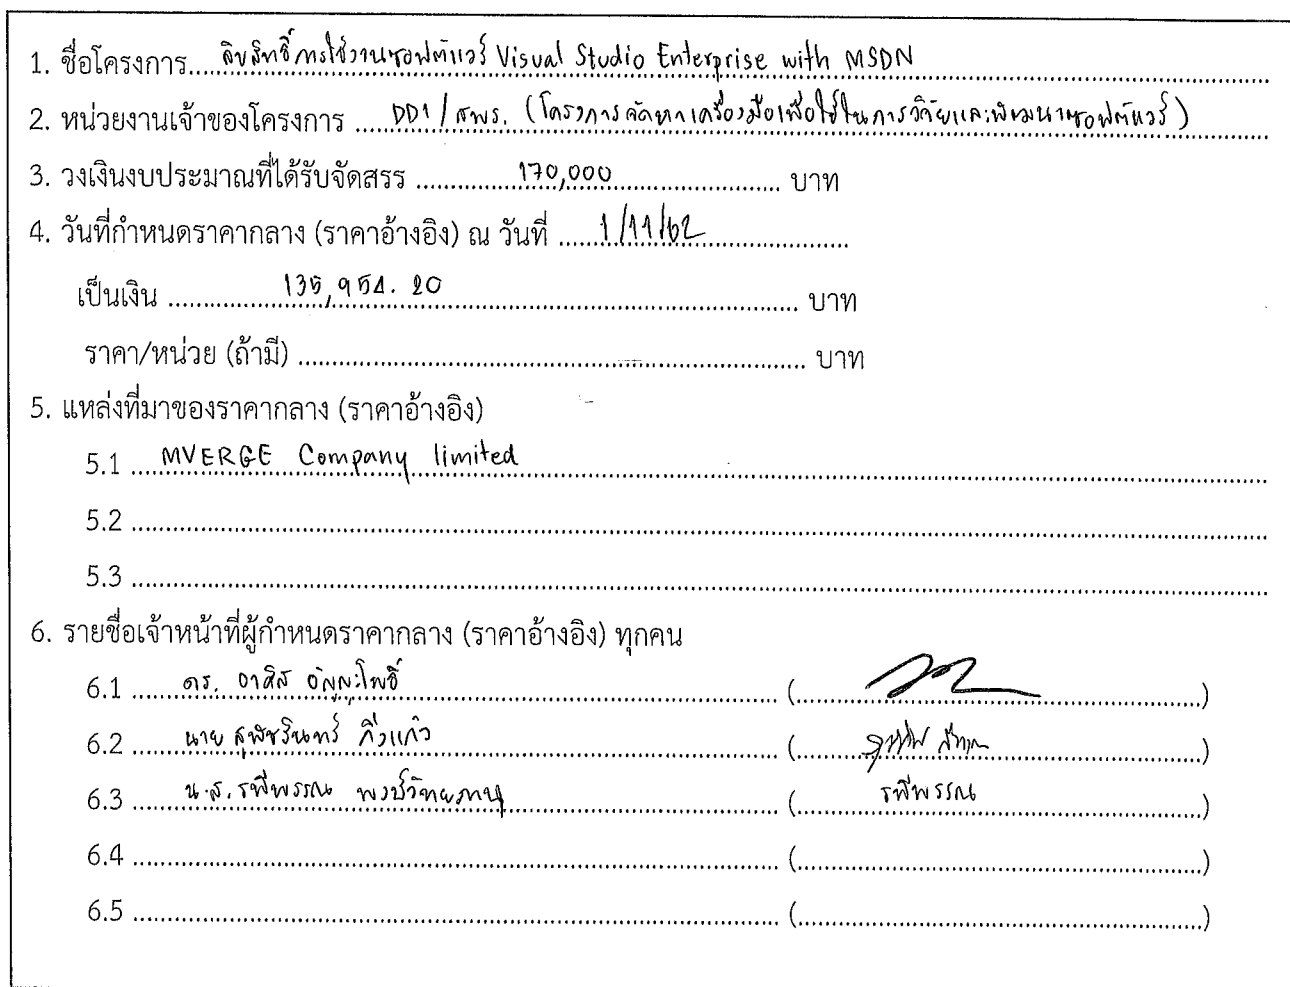 1. ชื่อโครงการ.... ลิขสิทธิ์การใช้งานซอฟต์แวร์ Visual Studio Enterprise with MSDN
2. หน่วยงานเจ้าของโครงการ ..... DD1 / สพร. (โครงการจัดหาเครื่องมือเพื่อใช้ในการวิจัยและพัฒนาซอฟต์แวร์)
3. วงเงินงบประมาณที่ได้รับจัดสรร ..... 170,000 ..... บาท
4. วันที่กำหนดราคากลาง (ราคาอ้างอิง) ณ วันที่ ..... 1/11/62 .....
เป็นเงิน ..... 135,954.20 ..... บาท
ราคา/หน่วย (ถ้ามี) ..... บาท
5. แหล่งที่มาของราคากลาง (ราคาอ้างอิง)
5.1 .... MVERGE Company limited .....
5.2 .....
5.3 .....
6. รายชื่อเจ้าหน้าที่ผู้กำหนดราคากลาง (ราคาอ้างอิง) ทุกคน
6.1 ..... ดร. อาศิส อัญญะโพธิ์ ..... (.....)
6.2 ..... นาย สุพัชรินทร์ กิ่งแก้ว ..... (.....)
6.3 ..... น.ส. รพีพรรณ พงษ์วิทยภานุ ..... (..... รพีพรรณ .....)
6.4 ..... (.....)
6.5 ..... (.....)